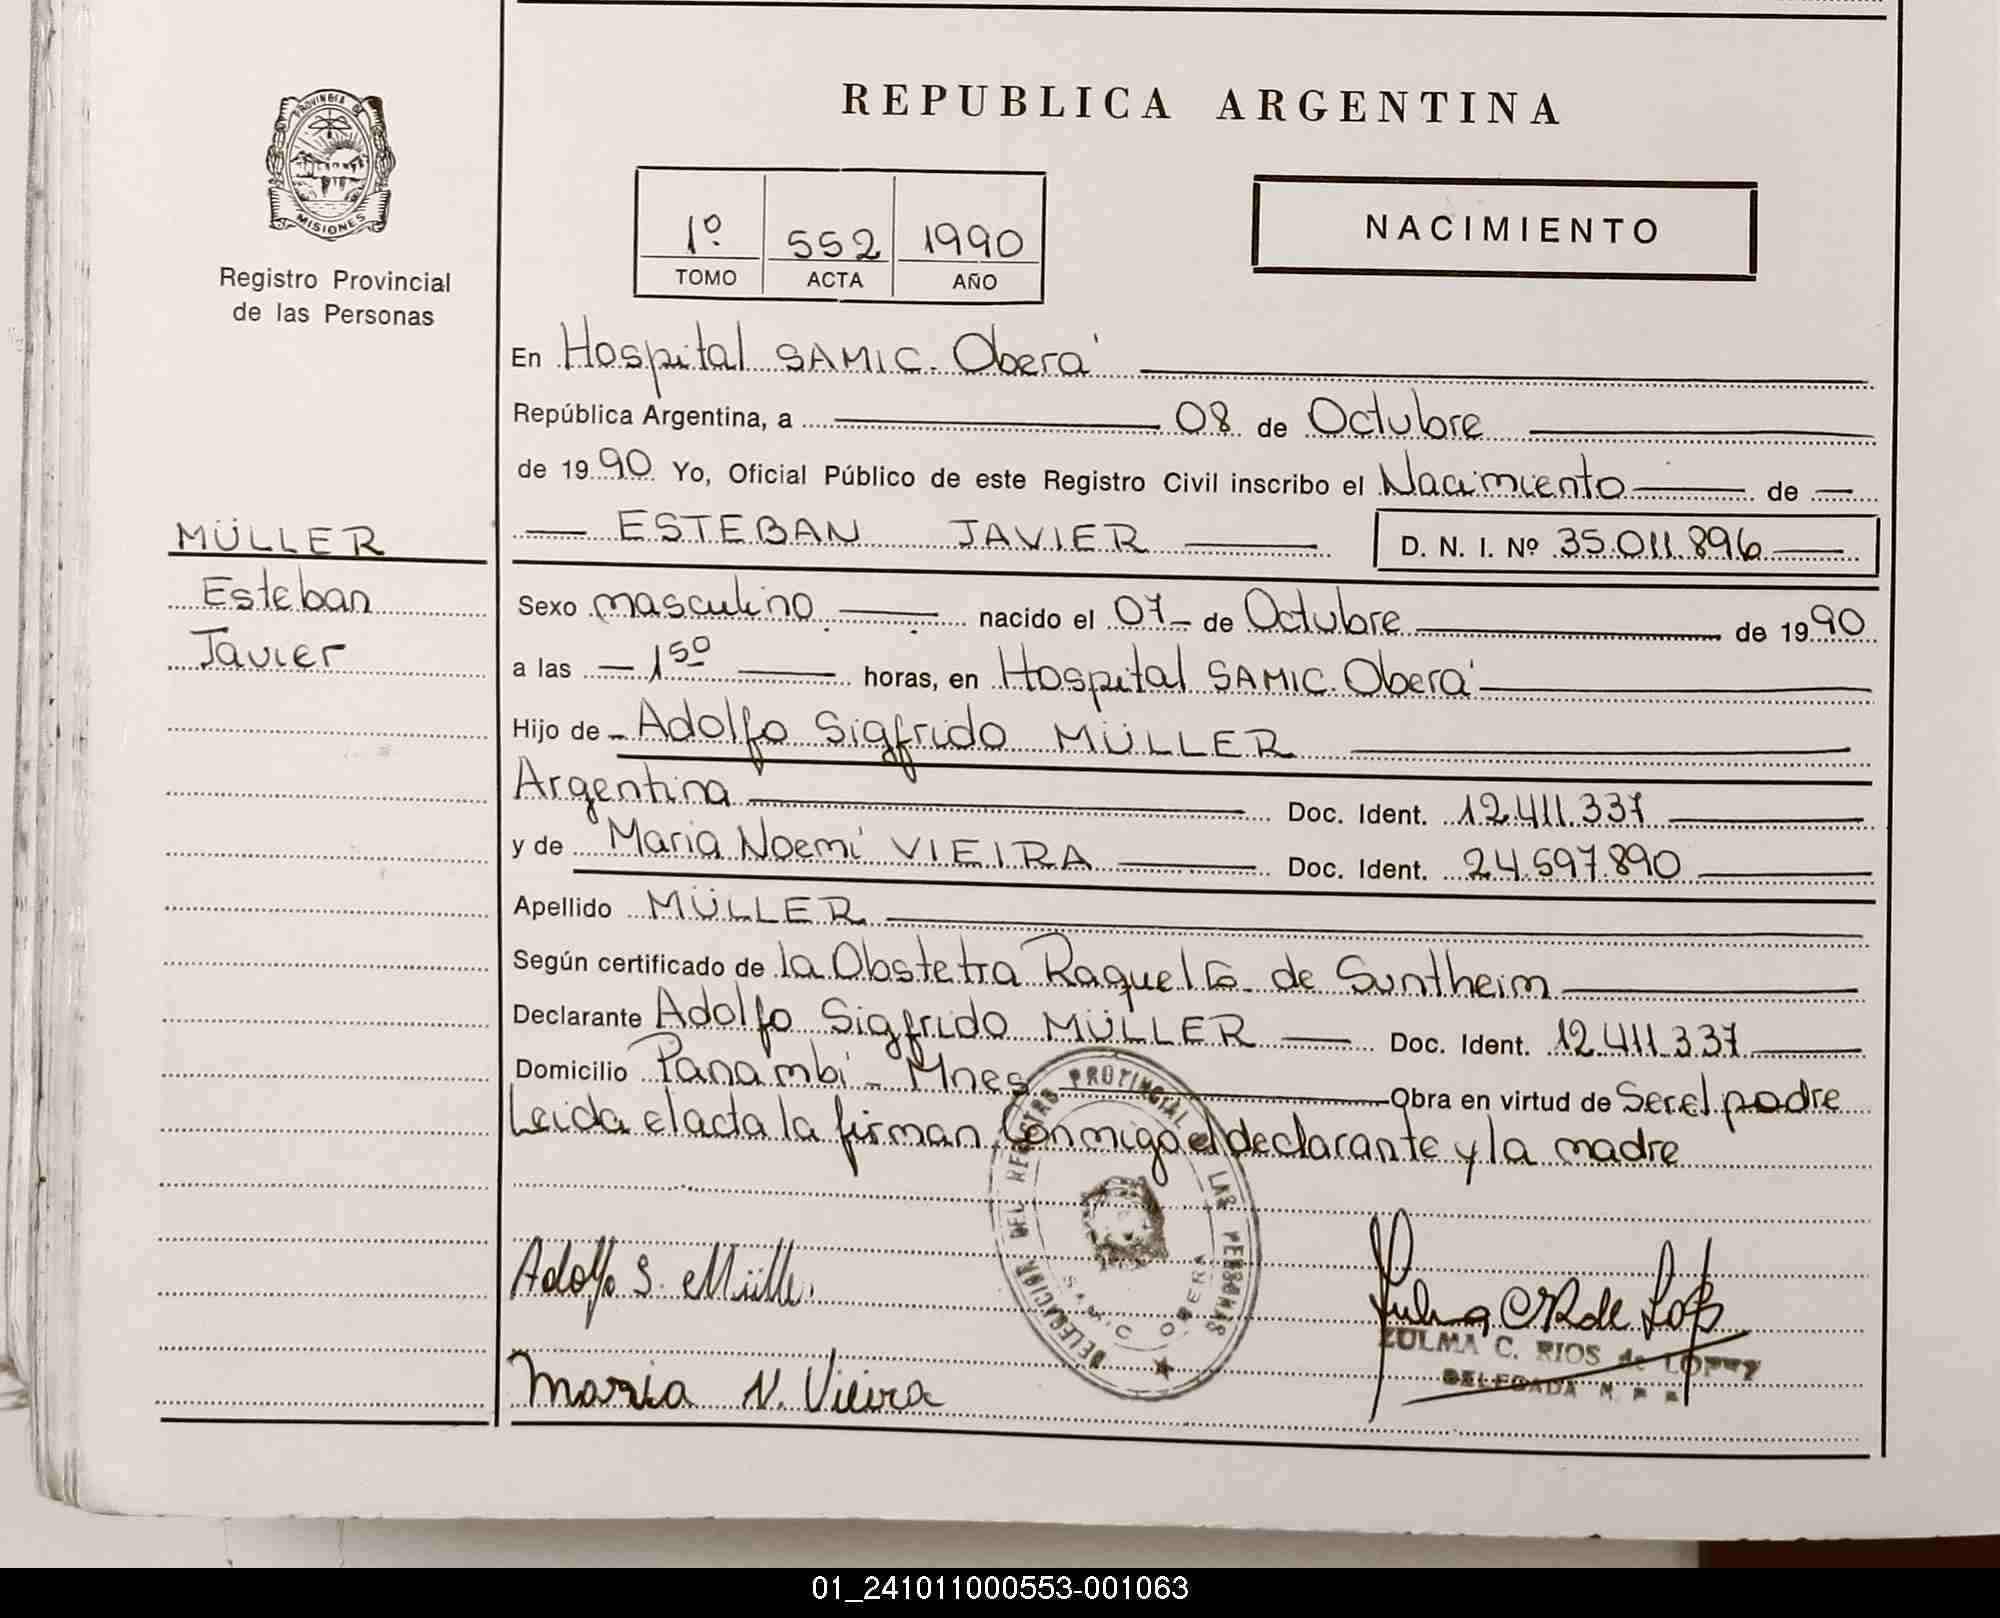 REPUBLICA ARGENTINA
PROVINCIA DE
MISIONES
Registro Provincial
de las Personas
1º 552 1990
TOMO ACTA AÑO
NACIMIENTO
En Hospital SAMIC. Oberá
República Argentina, a 08 de Octubre
de 1990 Yo, Oficial Público de este Registro Civil inscribo el Nacimiento de
ESTEBAN JAVIER D. N. I. Nº 35.011.896
MÜLLER
Esteban
Javier
Sexo masculino nacido el 07 de Octubre de 1990
a las 1 50 horas, en Hospital SAMIC. Oberá
Hijo de Adolfo Sigfrido MÜLLER
Argentina Doc. Ident. 12.411.337
y de Maria Noemí VIEIRA Doc. Ident. 24.597.890
Apellido MÜLLER
Según certificado de la Obstetra Raquel G. de Suntheim
Declarante Adolfo Sigfrido MÜLLER Doc. Ident. 12.411.337
Domicilio Panambí - Mnes Obra en virtud de Ser el padre
Leida el acta la firman Conmigo el declarante y la madre
DELEGACION DEL REGISTRO PROVINCIAL LAS PERSONAS
SAMIC OBERA
Adolfo S. Müller.
Maria N. Vieira
ZULMA C. RIOS de LOPEZ
DELEGADA
01_241011000553-001063